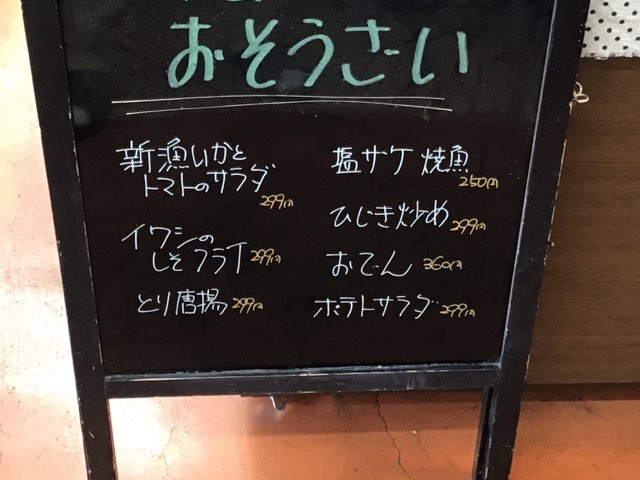 おそうざい
新漁いかと
トマトのサラダ
299円
イワシの
しそフライ 299円
とり唐揚 299円
塩ザケ 焼魚
250円
ひじき炒め 299円
おでん 360円
ポテトサラダ 299円